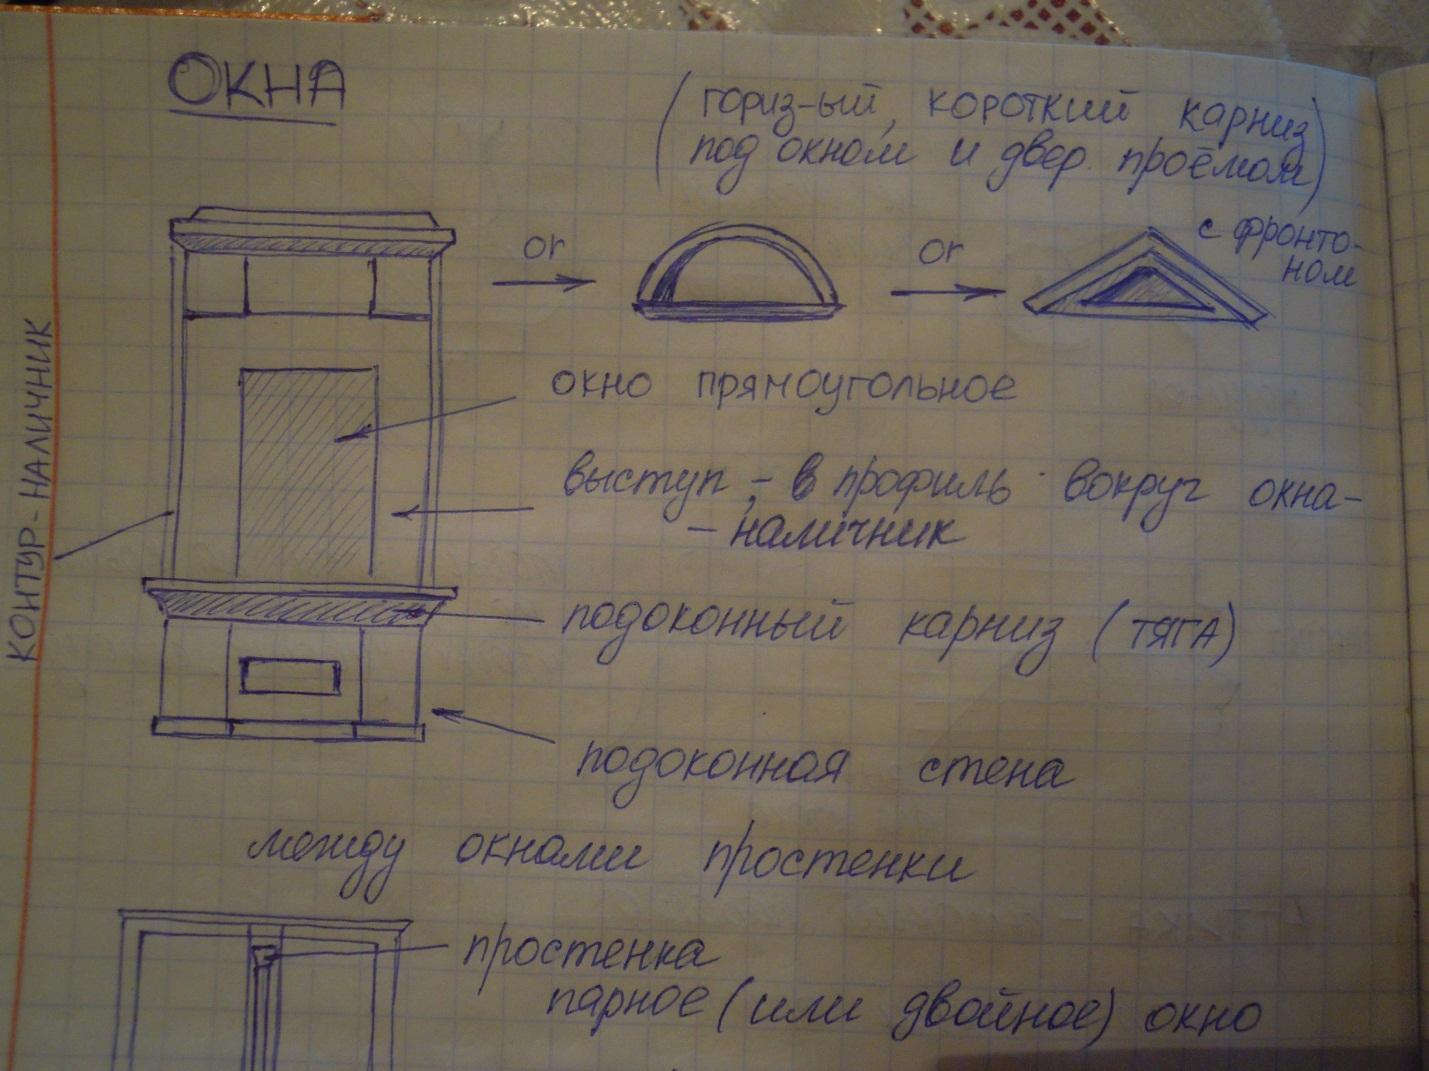 ОКНА
(гориз-ый, короткий карниз
под окном и двер. проёмом)
or
or
с фронто-
ном
окно прямоугольное
выступ, - в профиль вокруг окна-
- наличник
КОНТУР-НАЛИЧНИК
подоконный карниз (ТЯГА)
подоконная стена
между окнами простенки
простенка
парное (или двойное) окно